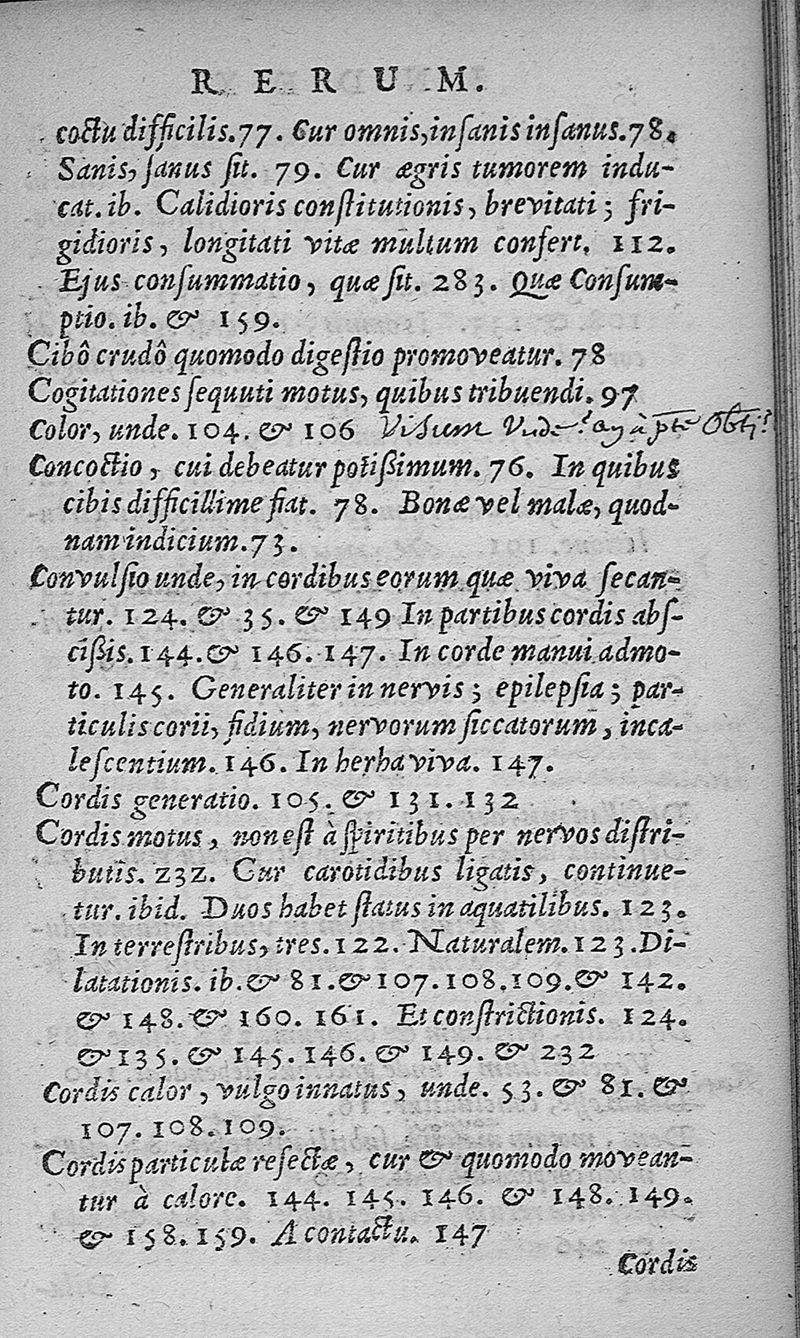 RERUM.
coctu difficilis. 77. Cur omnis, insanis insanus. 78.
Sanis, sanus sit. 79. Cur ægris tumorem indu-
cat. ib. Calidioris constitutionis, brevitati; fri-
gidioris, longitati vitæ multum confert. 112.
Ejus consummatio, quæ sit. 283. Quæ Consum-
ptio. ib. & 159.
Cibô crudô quomodo digestio promoveatur. 78
Cogitationes sequuti motus, quibus tribuendi. 97
Color, unde. 104. & 106 Visum Vide
Concoctio, cui debeatur potißimum. 76. In quibus
cibis difficillime fiat. 78. Bonæ vel malæ, quod-
nam indicium. 73.
Convulsio unde, in cordibus eorum quæ viva secan-
tur. 124. & 35. & 149 In partibus cordis abs-
cißis. 144. & 146. 147. In corde manui admo-
to. 145. Generaliter in nervis; epilepsia; par-
ticulis corii, fidium, nervorum siccatorum, inca-
lescentium. 146. In herba viva. 147.
Cordis generatio. 105. & 131. 132
Cordis motus, non est à spiritibus per nervos distri-
butis. 232. Cur carotidibus ligatis, continue-
tur. ibid. Duos habet status in aquatilibus. 123.
In terrestribus, tres. 122. Naturalem. 123. Di-
latationis. ib. & 81. & 107. 108. 109. & 142.
& 148. & 160. 161. Et constrictionis. 124.
& 135. & 145. 146. & 149. & 232
Cordis calor, vulgo innatus, unde. 53. & 81. &
107. 108. 109.
Cordis particulæ resectæ, cur & quomodo movean-
tur à calore. 144. 145. 146. & 148. 149.
& 158. 159. A contactu. 147
Cordis